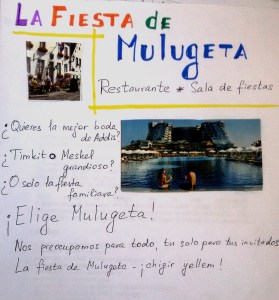 LA FIESTA DE
MULUGETA
Restaurante * Sala de fiestas
¿Quieres la mejor boda
de Addis?
¿Timkit o Meskel
grandioso?
¿O solo la fiesta
familiara?
¡Elige Mulugeta!
Nos preocupamos para todo, tu solo para tus invitados
La fiesta de Mulugeta - ¡chigir yellem!